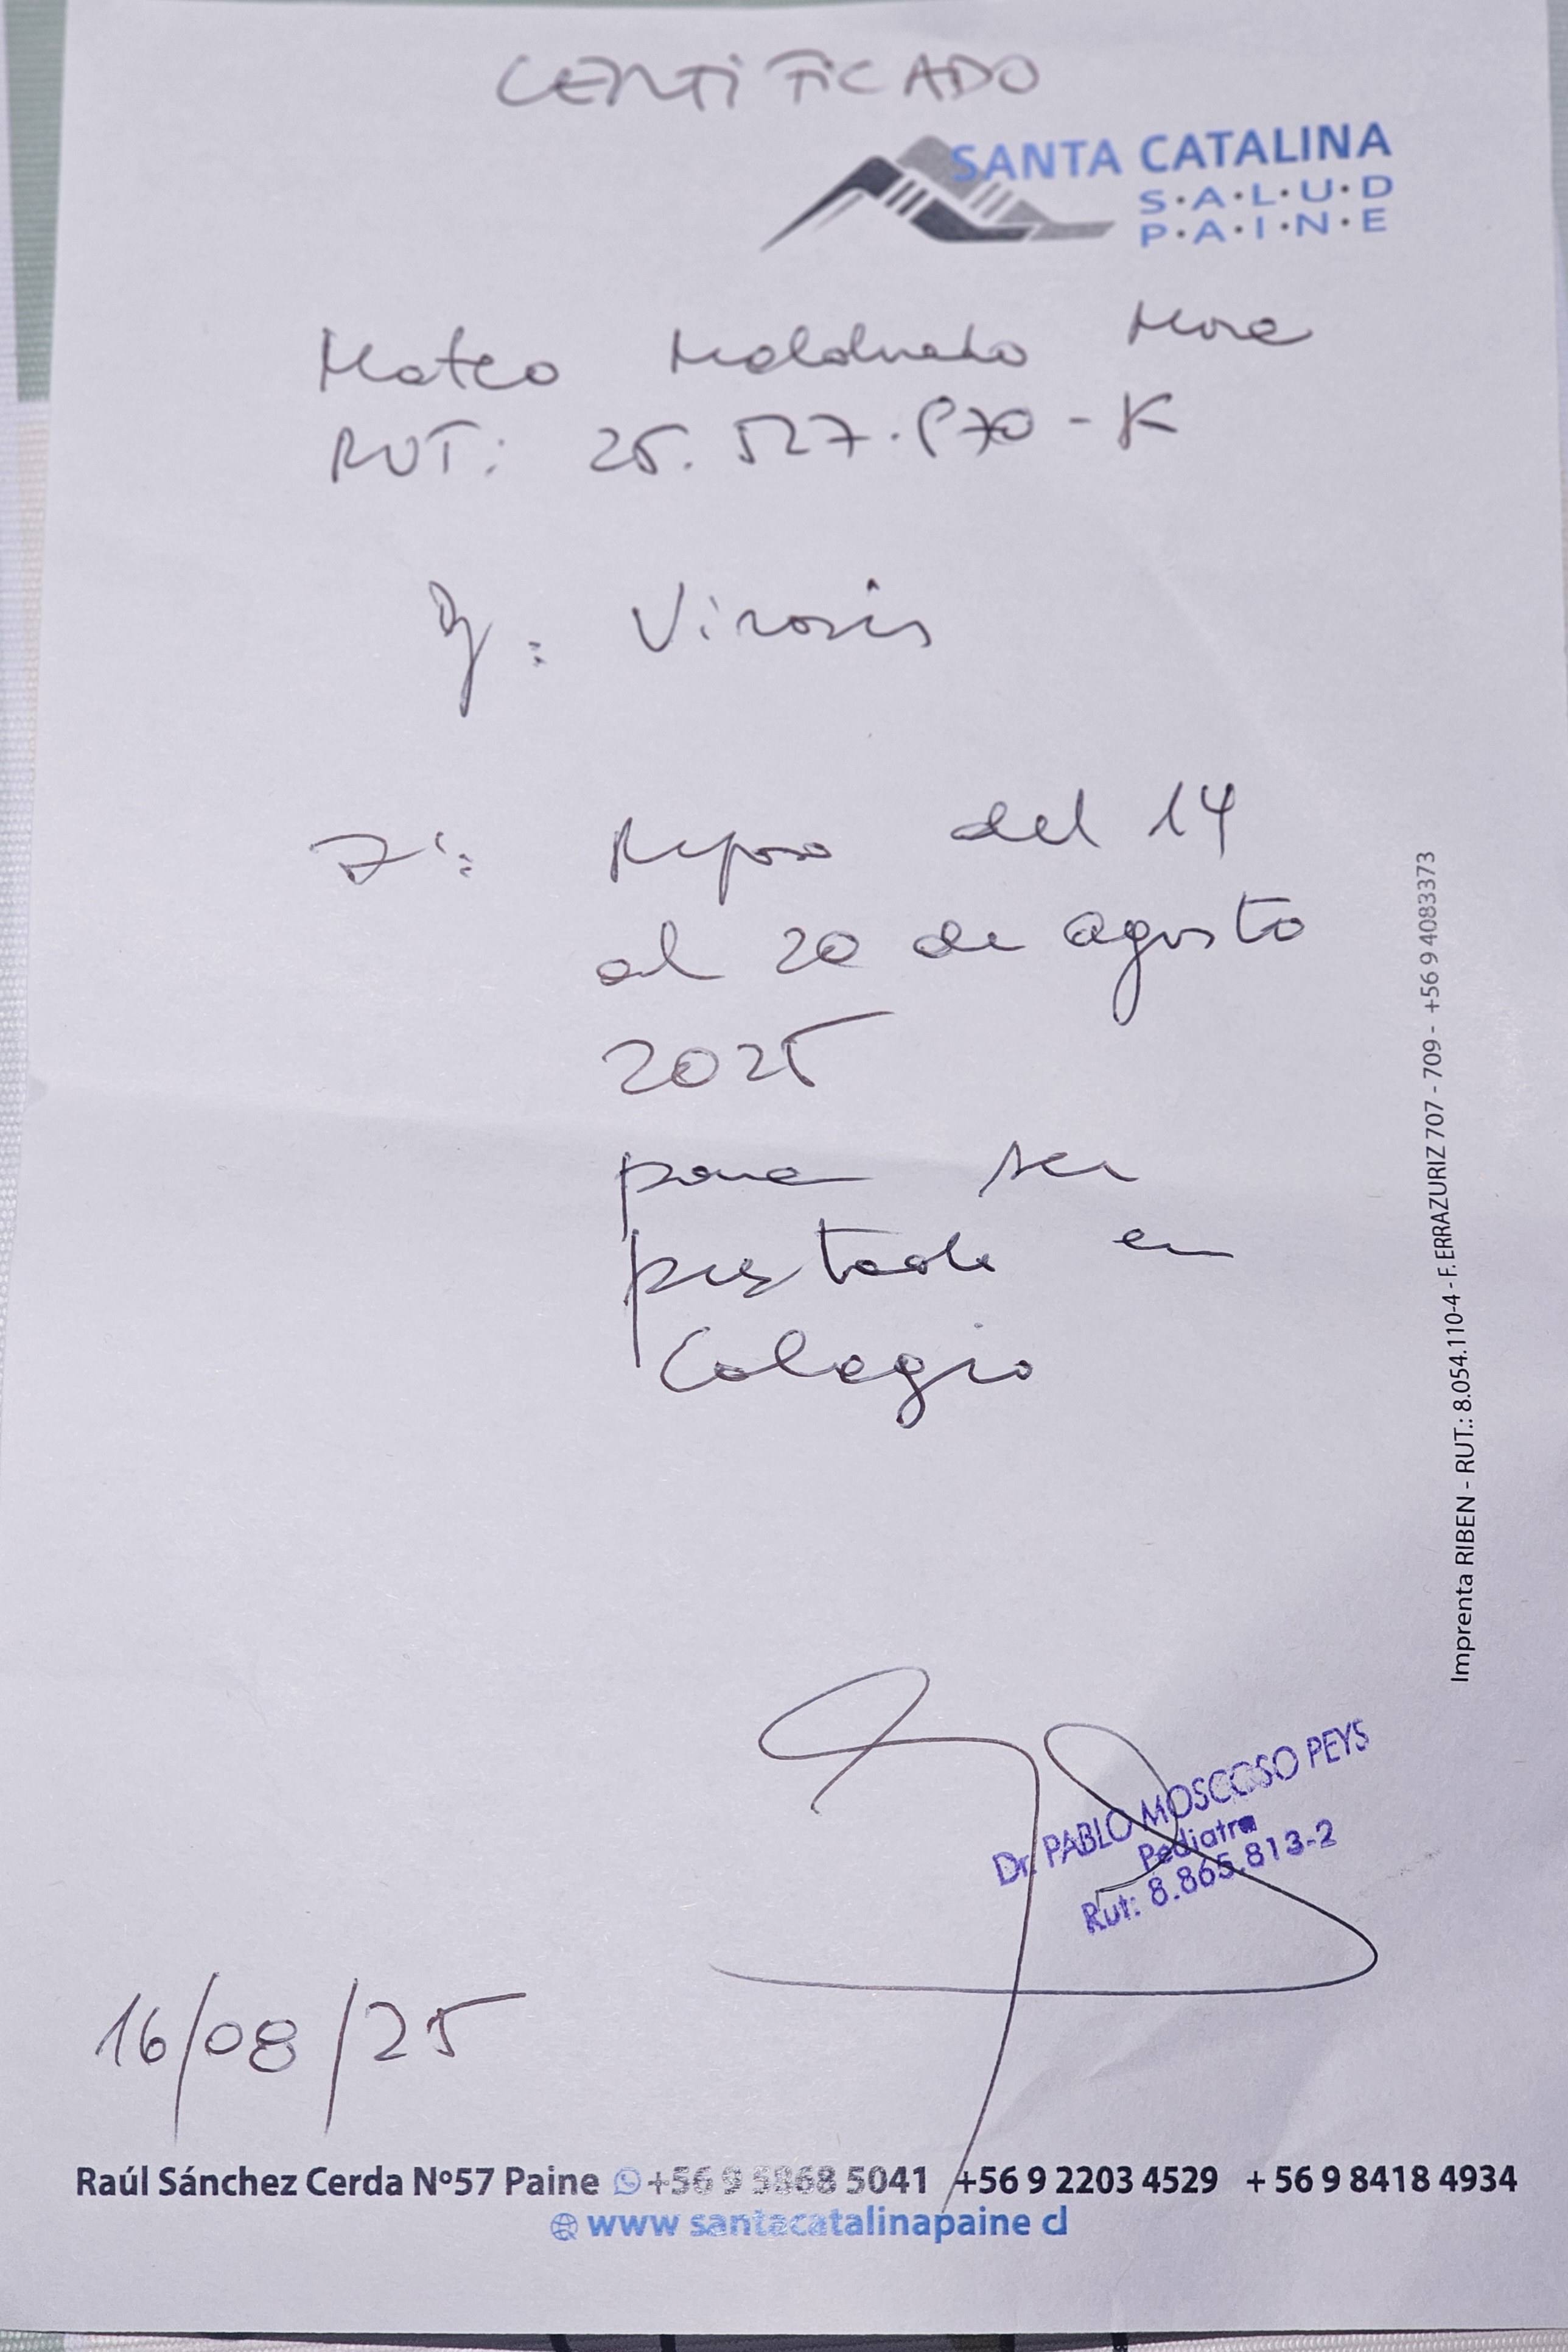 CERTIFICADO
SANTA CATALINA
S·A·L·U·D
P·A·I·N·E
Mateo Maldonado Mora
RUT: 25.527.870-K
Dg: Virosis
I: Reposo del 14
al 20 de agosto
2025
para ser
presentado en
Colegio
Imprenta RIBEN - RUT.: 8.054.110-4 - F. ERRAZURIZ 707 - 709 - +56 9 4083373
Dr. PABLO MOSCOSO PEYS
Pediatra
Rut: 8.865.813-2
16/08/25
Raúl Sánchez Cerda Nº57 Paine +56 9 5868 5041 +56 9 2203 4529 + 56 9 8418 4934
www santacatalinapaine cl